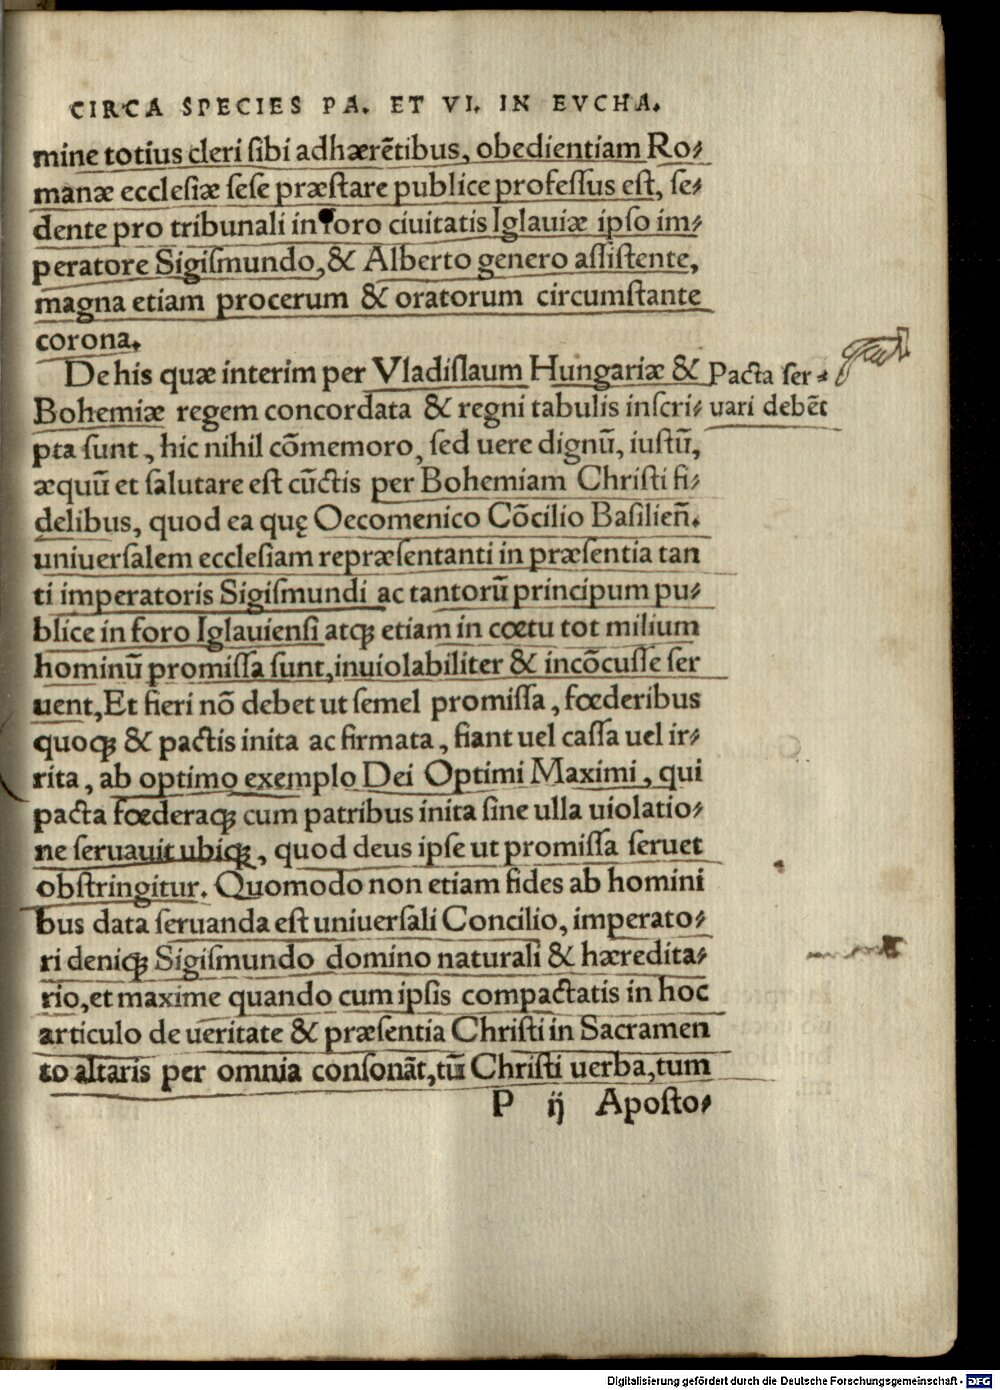 CIRCA SPECIES PA. ET VI. IN EVCHA.
mine totius cleri ſibi adhærētibus, obedientiam Ro⸗
manæ eccleſiæ ſeſe præſtare publice profeſſus eſt, ſe⸗
dente pro tribunali in foro ciuitatis Iglauiæ ipſo im⸗
peratore Sigiſmundo, & Alberto genero aſſiſtente,
magna etiam procerum & oratorum circumſtante
corona.
De his quæ interim per Vladiſlaum Hungariæ &
Bohemiæ regem concordata & regni tabulis inſcri⸗
pta ſunt, hic nihil cōmemoro, ſed uere dignū, iuſtū,
æquū et ſalutare eſt cūctis per Bohemiam Chriſti fi⸗
delibus, quod ea quę Oecomenico Cōcilio Baſilien̄.
uniuerſalem eccleſiam repræſentanti in præſentia tan
ti imperatoris Sigiſmundi ac tantorū principum pu⸗
blice in foro Iglauienſi atqꝫ etiam in cœtu tot milium
hominū promiſſa ſunt, inuiolabiliter & incōcuſſe ſer
uent, Et fieri nō debet ut ſemel promiſſa, fœderibus
quoqꝫ & pactis inita ac firmata, fiant uel caſſa uel ir⸗
rita, ab optimo exemplo Dei Optimi Maximi, qui
pacta fœderaqꝫ cum patribus inita ſine ulla uiolatio⸗
ne ſeruauit ubiqꝫ, quod deus ipſe ut promiſſa ſeruet
obſtringitur. Quomodo non etiam fides ab homini
bus data ſeruanda eſt uniuerſali Concilio, imperato⸗
ri deniqꝫ Sigiſmundo domino naturali & hæredita⸗
rio, et maxime quando cum ipſis compactatis in hoc
articulo de ueritate & præſentia Chriſti in Sacramen
to altaris per omnia conſonāt, tū Chriſti uerba, tum
P ij Apoſto⸗
Pacta ſer⸗
uari debēt
Digitalisierung gefördert durch die Deutsche Forschungsgemeinschaft - DFG